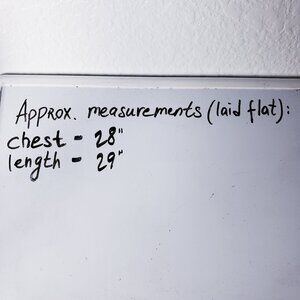 Approx. measurements (laid flat):
chest - 28"
length - 29"